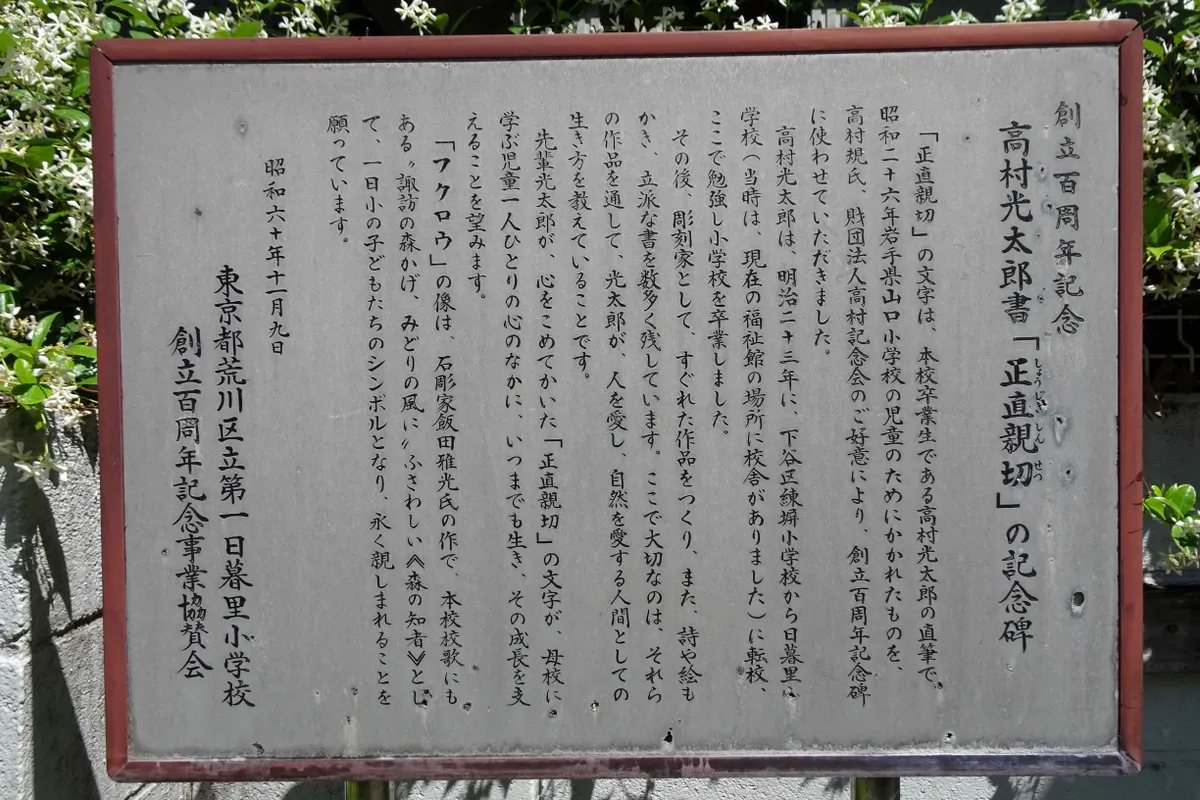 創立百周年記念
高村光太郎書「正直親切」の記念碑
しょうじきしんせつ
「正直親切」の文字は、本校卒業生である高村光太郎の直筆で、
昭和二十六年岩手県山口小学校の児童のためにかかれたものを、
高村規氏、財団法人高村記念会のご好意により、創立百周年記念碑
に使わせていただきました。
高村光太郎は、明治二十三年に、下谷区練塀小学校から日暮里小
学校（当時は、現在の福祉館の場所に校舎がありました）に転校、
ここで勉強し小学校を卒業しました。
その後、彫刻家として、すぐれた作品をつくり、また、詩や絵も
かき、立派な書を数多く残しています。ここで大切なのは、それら
の作品を通して、光太郎が、人を愛し、自然を愛する人間としての
生き方を教えていることです。
先輩光太郎が、心をこめてかいた「正直親切」の文字が、母校に
学ぶ児童一人ひとりの心のなかに、いつまでも生き、その成長を支
えることを望みます。
「フクロウ」の像は、石彫家飯田雅光氏の作で、本校校歌にも
ある〝諏訪の森かげ、みどりの風に〟ふさわしい《森の知者》とし
て、一日小の子どもたちのシンボルとなり、永く親しまれることを
願っています。
昭和六十年十一月九日
東京都荒川区立第一日暮里小学校
創立百周年記念事業協賛会